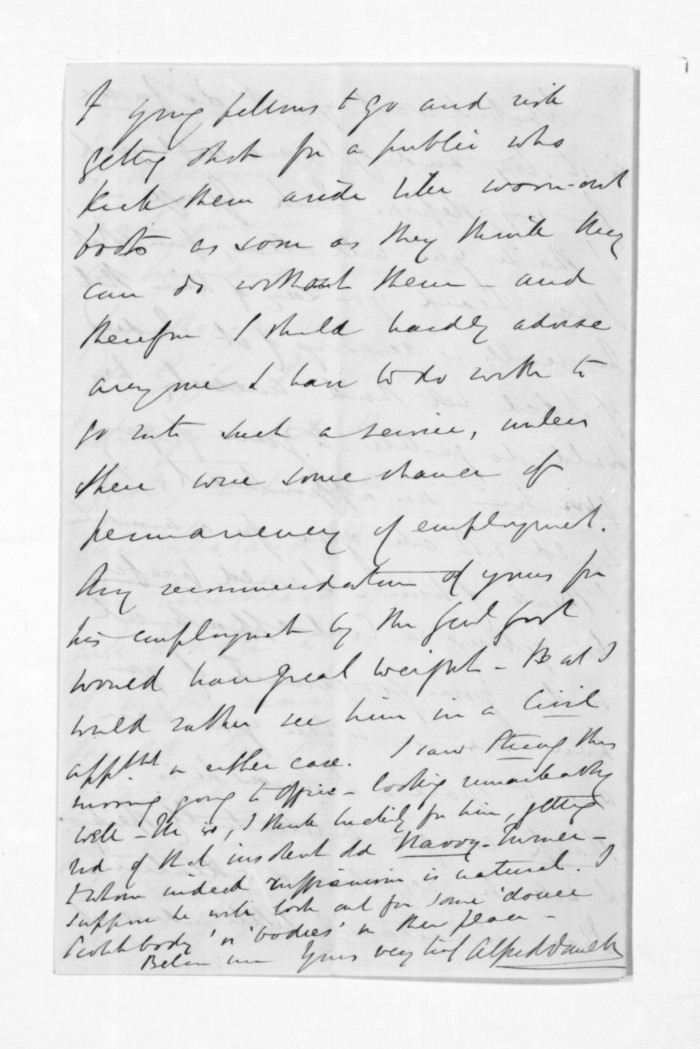 of young fellows to go and risk
getting shot for a public who
kick them aside like worn-out
boots as soon as they think they
can do without them - and
therefore I should hardly advise
anyone I have to do with to
go into such a service, unless
there were some chance of
permanency of employment.
Any recommendation of yours for
his employment by the Genl Govt
would have great weight - But I
would rather see him in a Civil
apptmt in either case. I saw Strang this
morning going to office - looking remarkably
well - He is, I think luckily for him, getting
rid of that insolent old Navvy-Turner -
to whom indeed ruffianism is natural. I
suppose he will look out for some 'douce
Scotch body' or 'bodies' in their place -
Believe me Yours very truly Alfred Domett